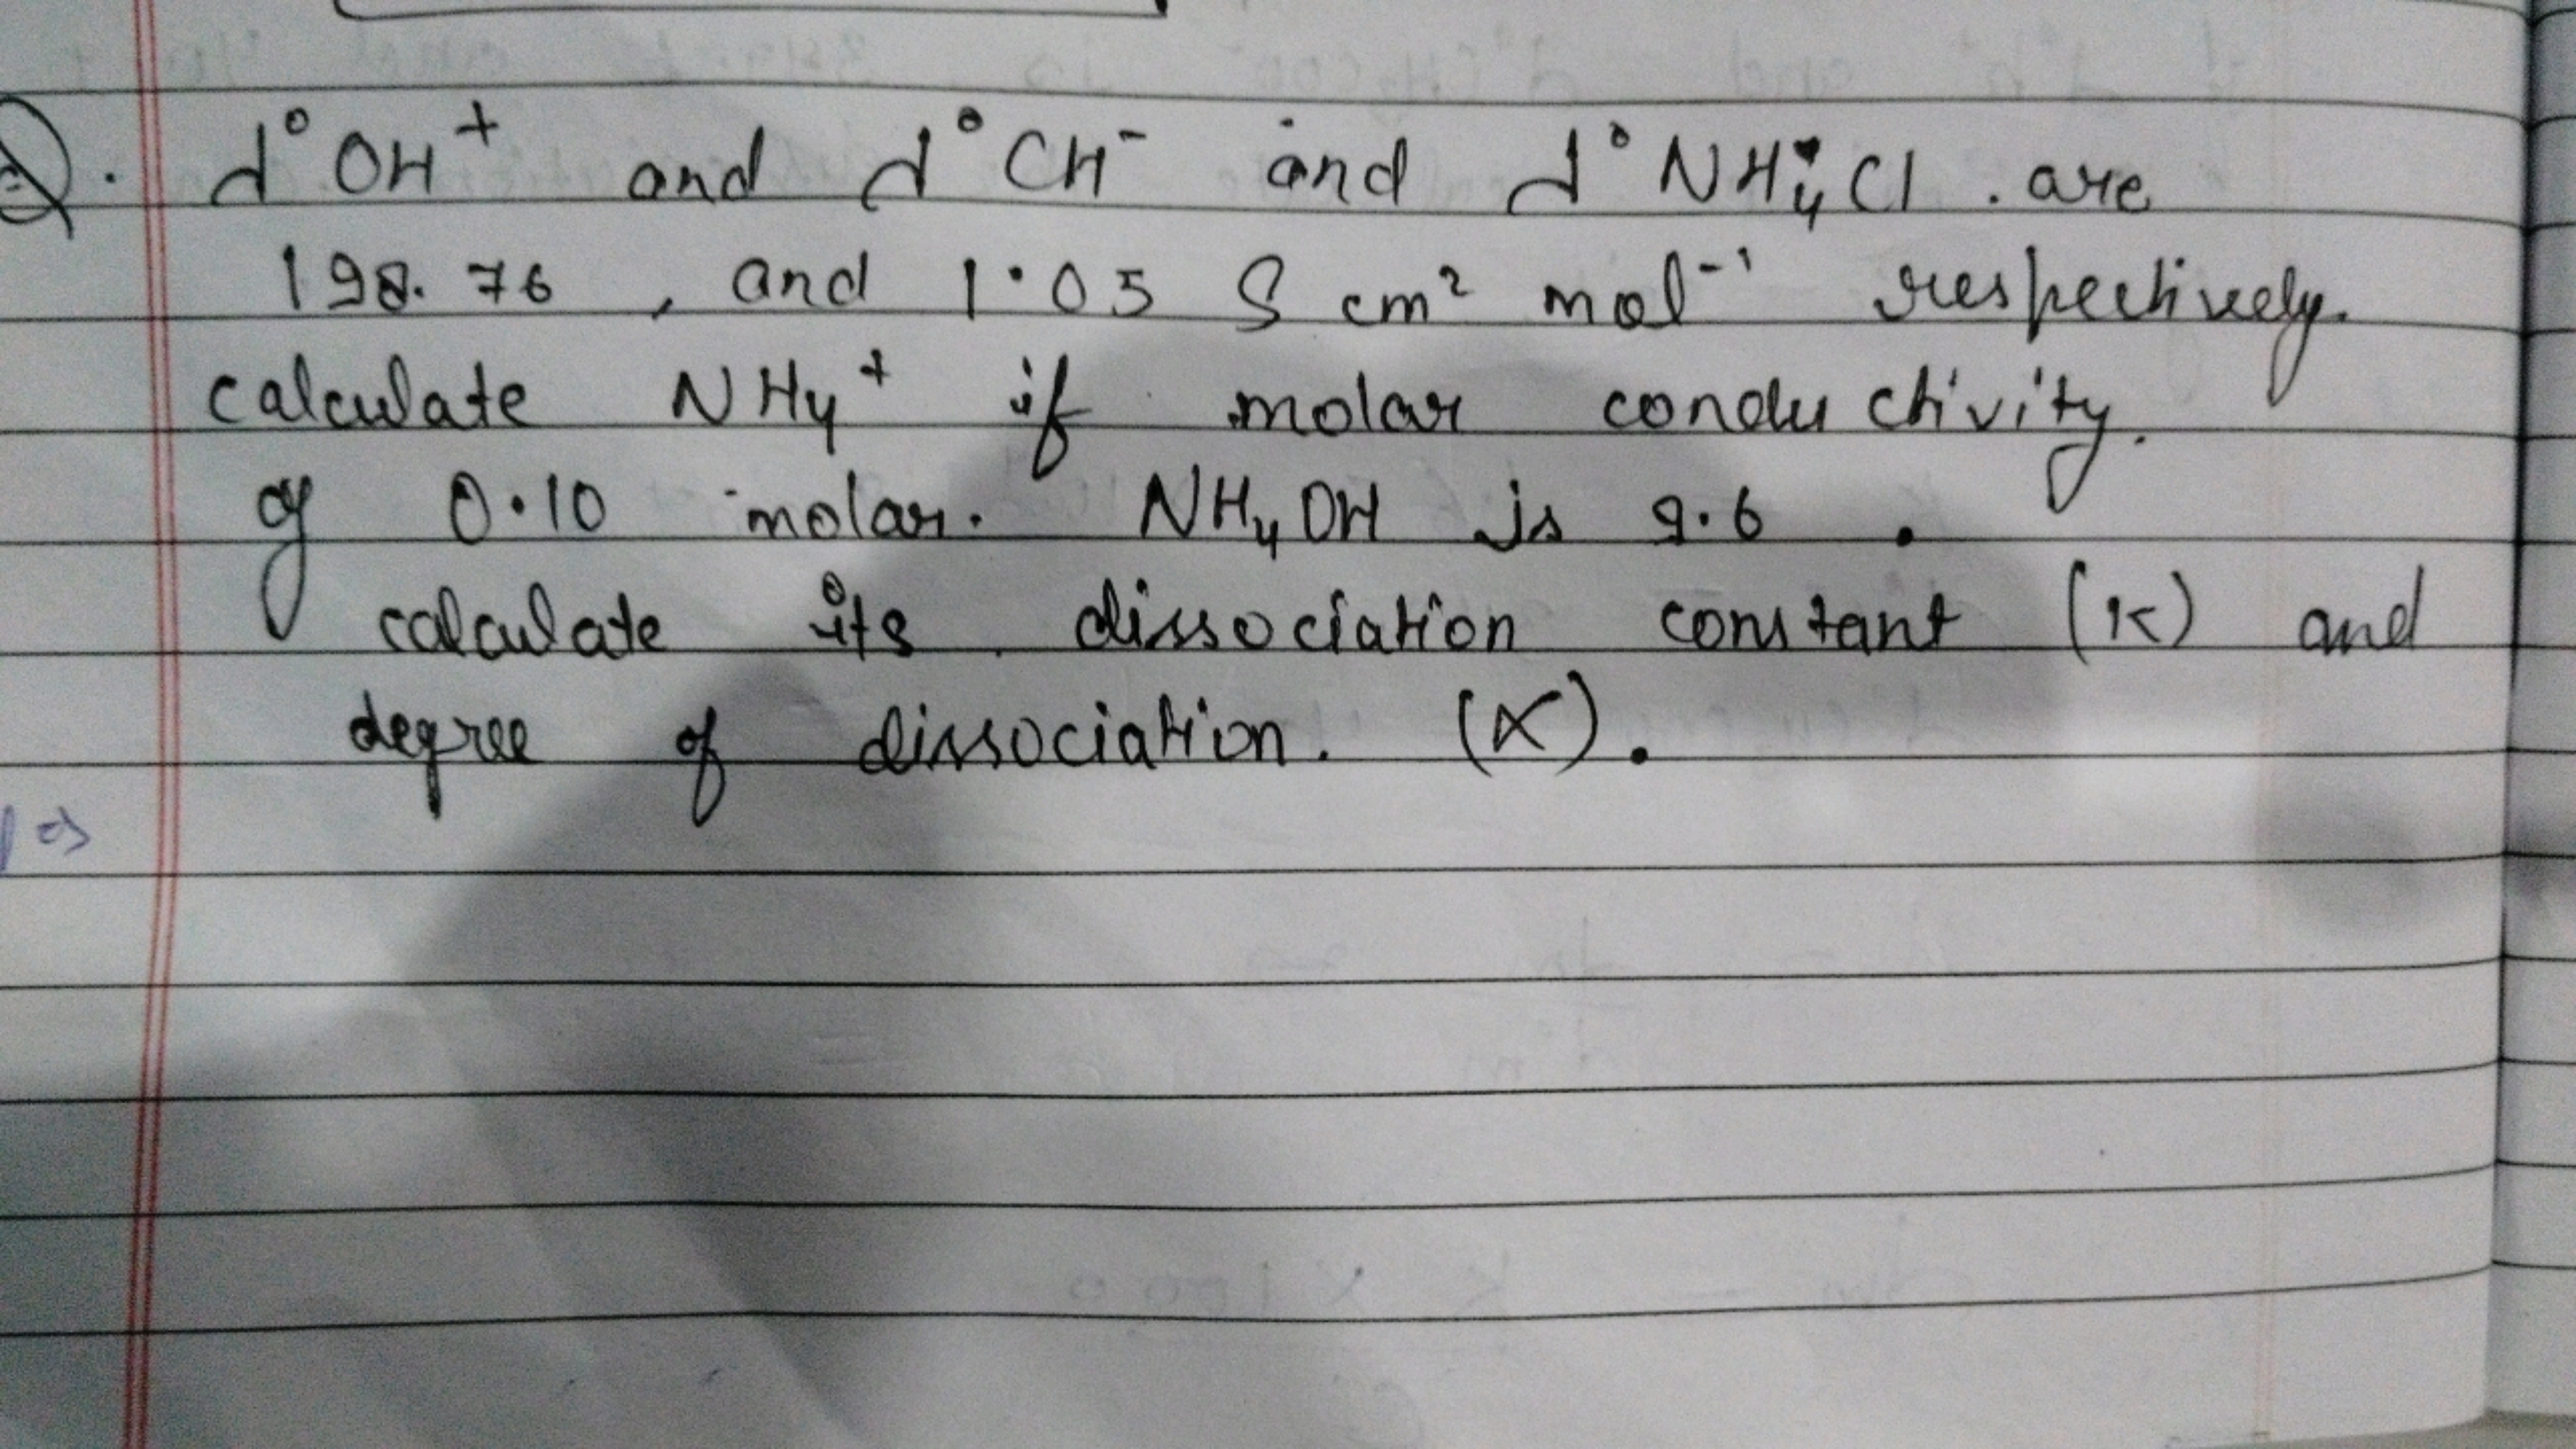 Q. λ°OH⁺ and λ°CH⁻ and λ°NH₄Cl . are
198.76 , and 1.05 S cm² mol⁻¹ respectively.
calculate NH₄⁺ if molar conductivity.
of 0.10 molar. NH₄OH is 9.6 .
calculate its dissociation constant (K) and
degree of dissociation. (α).